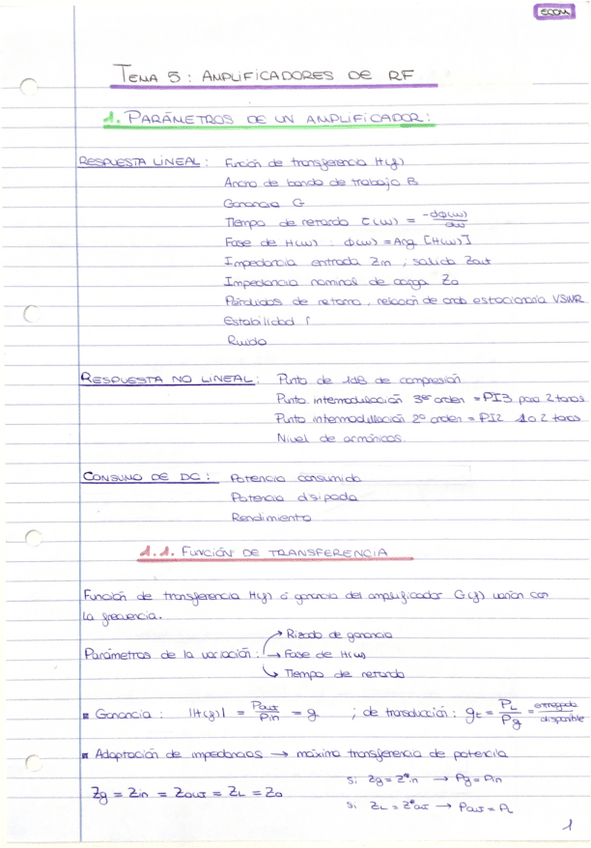 ECOM
TEMA 5: AMPLIFICADORES DE RF
1. PARÁMETROS DE UN AMPLIFICADOR:
RESPUESTA LINEAL: Función de transferencia H(f)
Ancho de banda de trabajo B
Ganancia G
Tiempo de retardo τ(ω) = -dφ(ω)/dω
Fase de H(ω): φ(ω) = Arg [H(ω)]
Impedancia entrada Zin, salida Zout
Impedancia nominal de carga Zo
Pérdidas de retorno, relación de onda estacionaria VSWR
Estabilidad Γ
Ruido
RESPUESTA NO LINEAL: Punto de 1dB de compresión
Punto intermodulación 3er orden = PI3 para 2 tonos
Punto intermodulación 2º orden = PI2 1 o 2 tonos
Nivel de armónicos.
CONSUMO DE DC: Potencia consumida
Potencia disipada
Rendimiento
1.1. FUNCIÓN DE TRANSFERENCIA
Función de transferencia H(f) ó ganancia del amplificador G(f) varían con
la frecuencia.
→ Rizado de ganancia
Parámetros de la variación: → Fase de H(ω)
→ Tiempo de retardo
Ganancia: |H(f)| = Pout/Pin = g ; de transducción: gt = PL/Pg = entregada/disponible
Adaptación de impedancias → máxima transferencia de potencia
Si Zg = Z*in → Pg = Pin
Zg = Zin = Zout = ZL = Zo
Si ZL = Z*out → Pout = PL
1